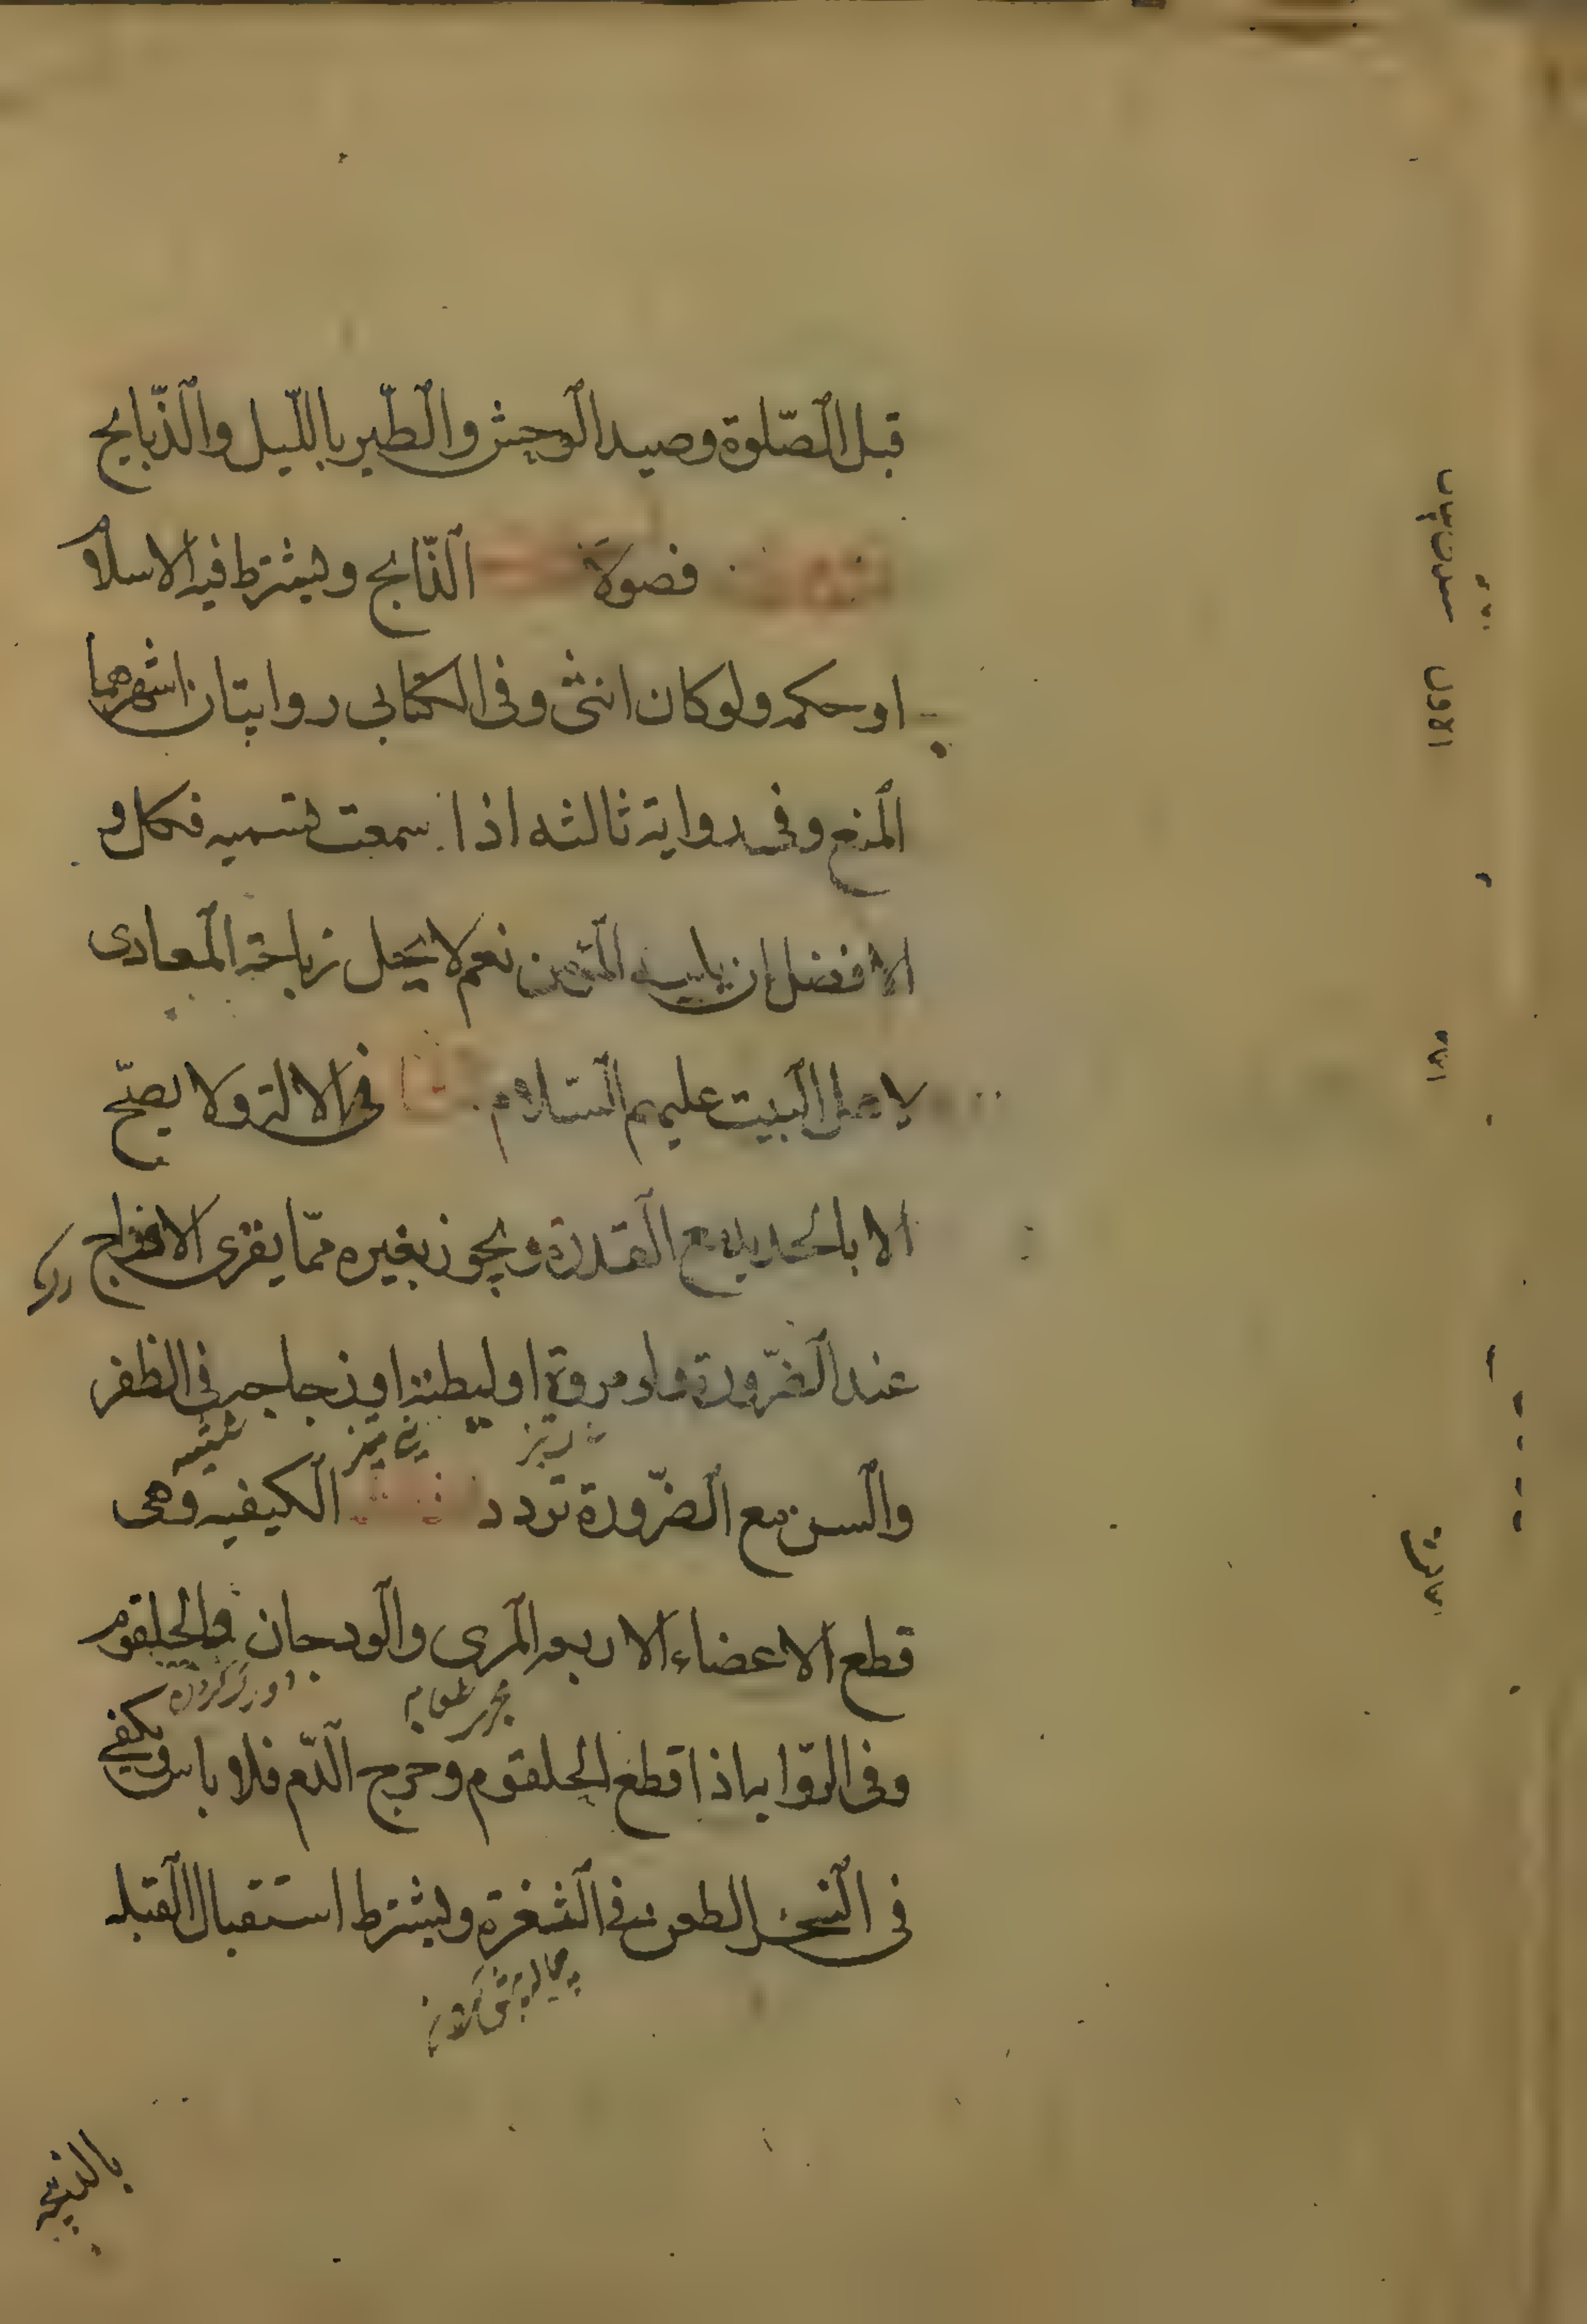 قبل الصّلوة وصيد الوحش والطّير بالليل والذّبايح
فصولة الذّابح ويشترط فيه الاسلام
او حكمه ولو كان انثى وفى الكتابى روايتان اشهرهما
المنع وفى رواية ثالثه اذا سمعت تسميه فكل و
الافضل ان يليه المؤمن نعم لا يحل زباحة المعادى
لاهل البيت عليهم السّلام فى الالة ولا يصحّ
الا بالحديد مع القدرة ويجوز بغيره ممّا يفرى الاوداج
عند الضّرورة ولو مروة او ليطة او زجاجه وفى الظفر
والسن مع الضّرورة تردد الكيفيه وهى
قطع الاعضاء الاربعه المرى والودجان والحلقوم
وفى الرّوايه اذا قطع الحلقوم وخرج الدّم فلا باس ويكفى
فى النحر الطعن فى الثغرة ويشترط استقبال القبله